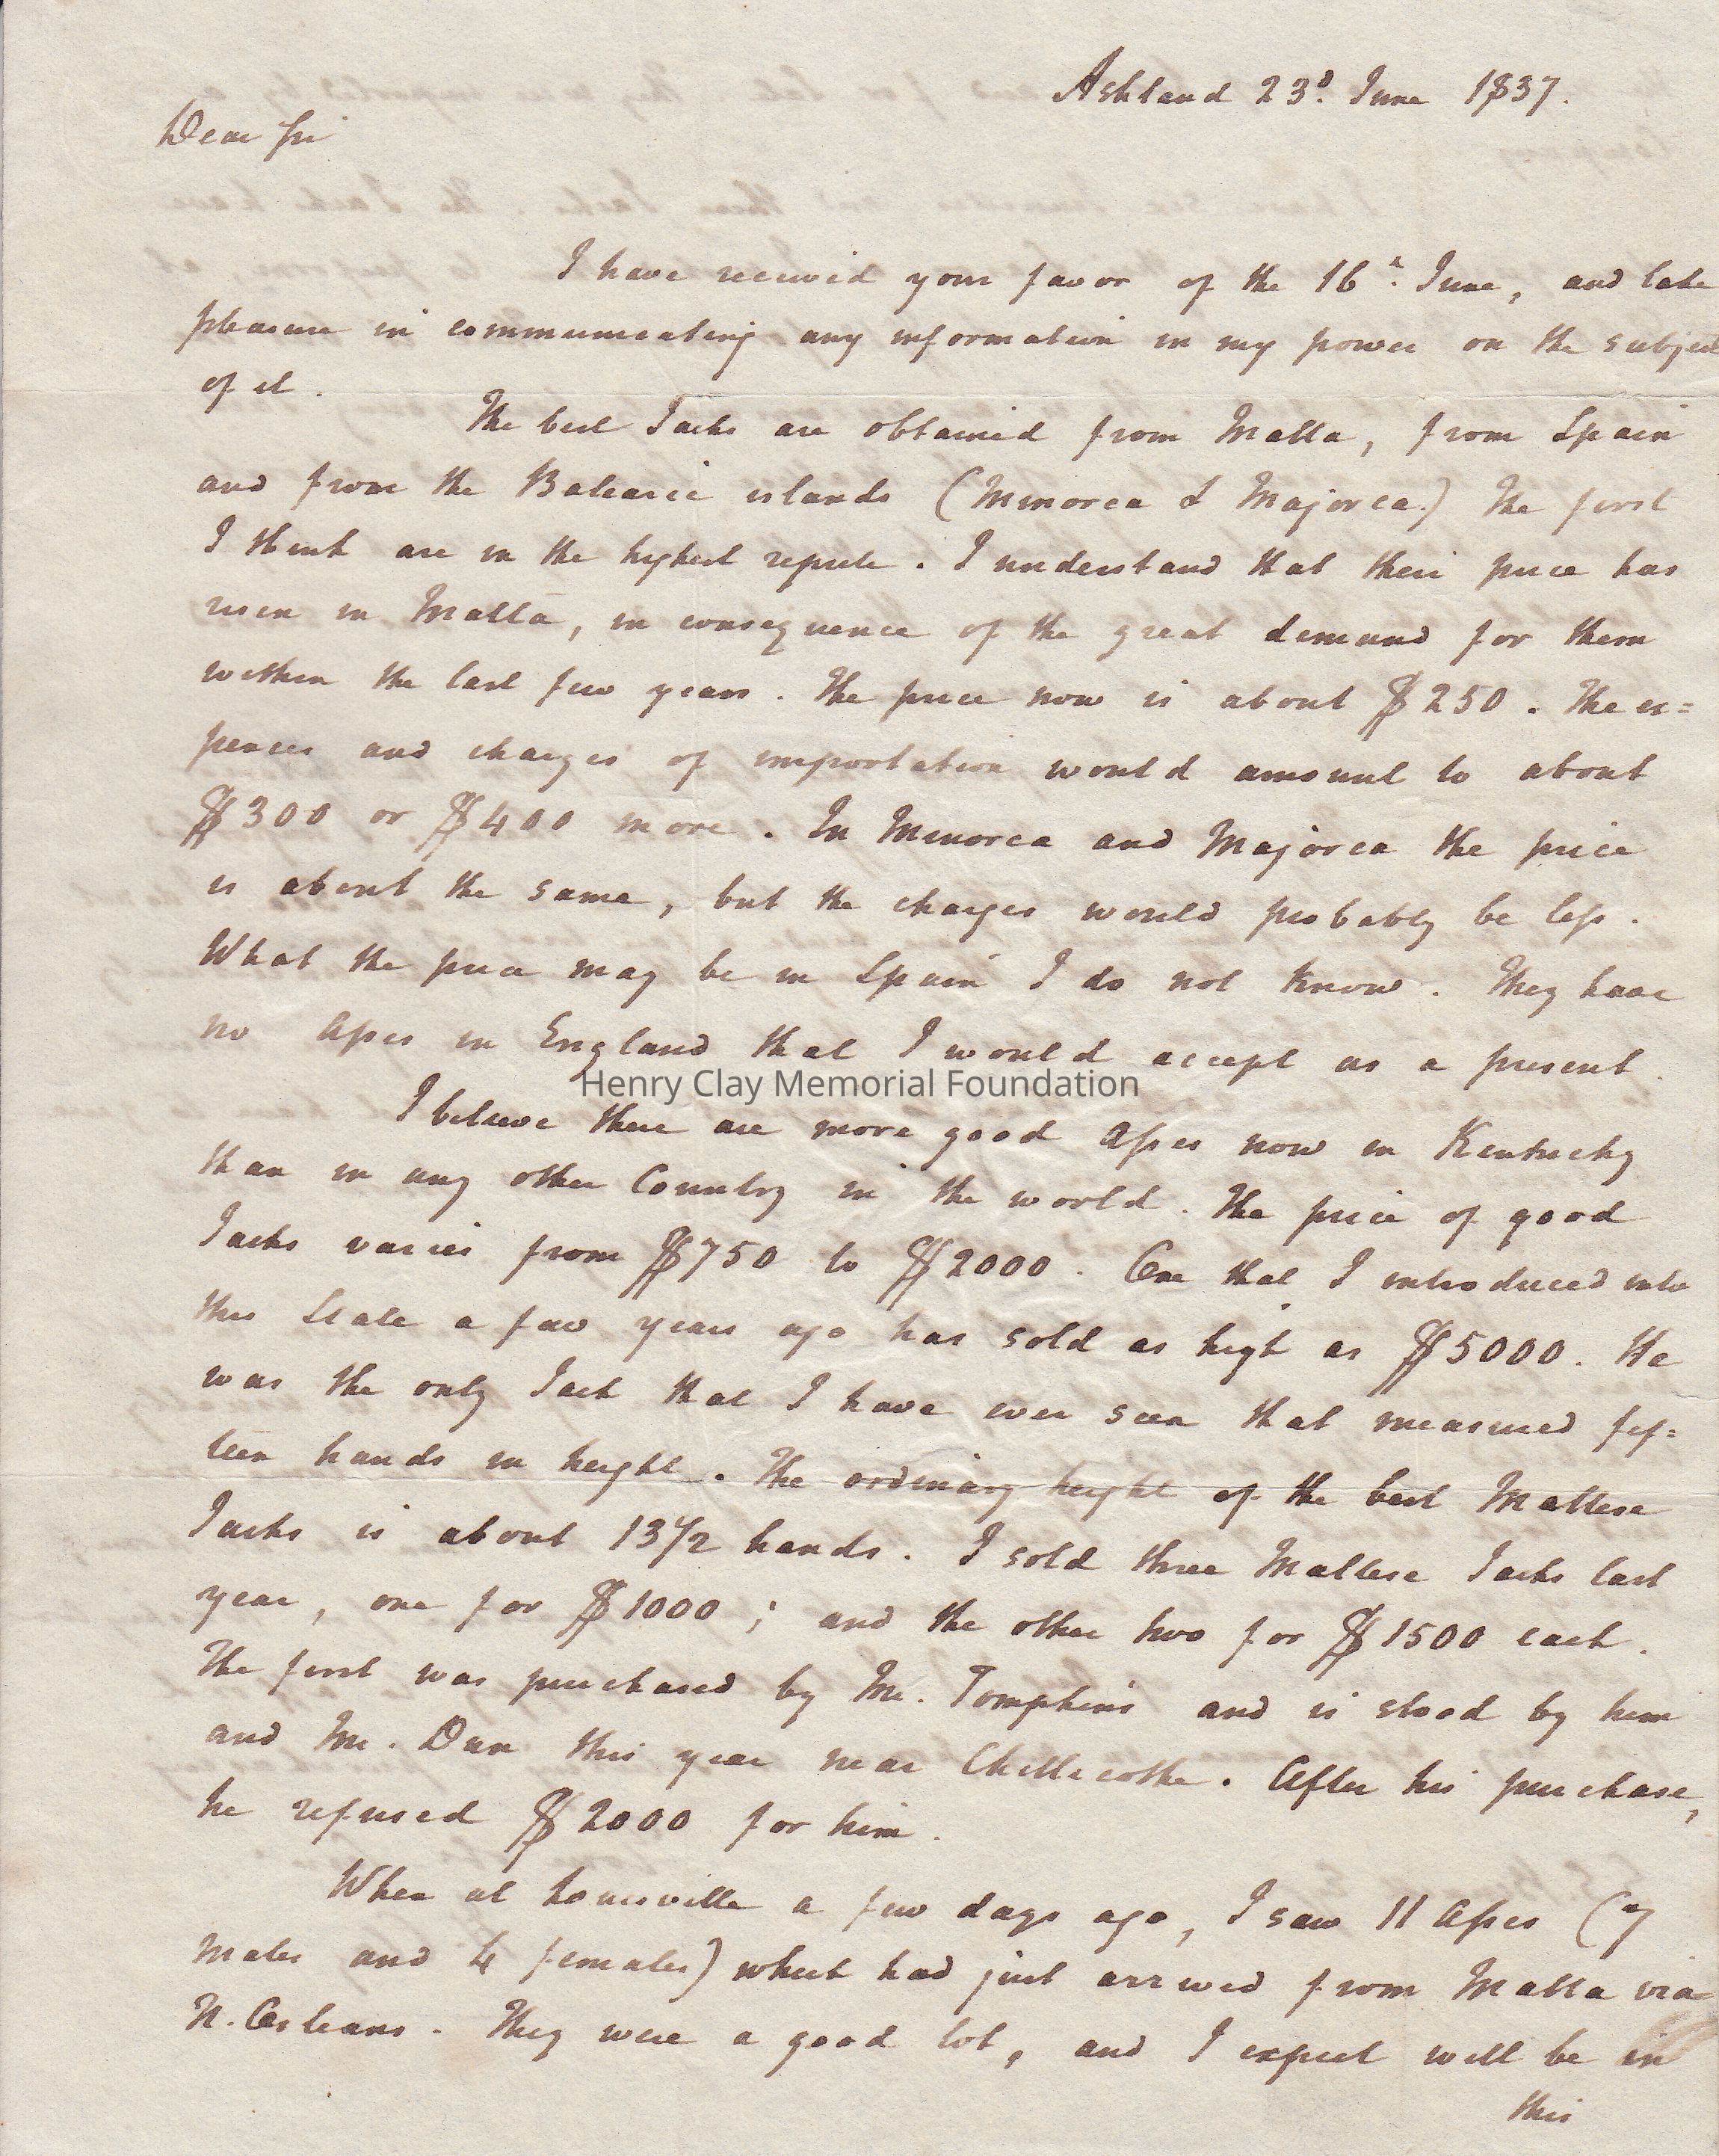 Ashland 23d. June 1837.
Dear Sir
I have received your favor of the 16h. June, and take
pleasure in communicating any information in my power on the subject
of it.
The best Jacks are obtained from Malta, from Spain
and from the Balearic islands (Minorca & Majorca.) The first
I think are in the highest repute. I understand that their price has
risen in Malta, in consequence of the great demand for them
within the last few years. The price now is about $250. The ex=
pences and charges of importation would amount to about
$300 or $400 more. In Minorca and Majorca the price
is about the same, but the charges would probably be less.
What the price may be in Spain I do not know. They have
no Asses in England that I would accept as a present.
Henry Clay Memorial Foundation
I believe there are more good Asses now in Kentucky
than in any other Country in the world. The price of good
Jacks varies from $750 to $2000. One that I introduced into
this State a few years ago has sold as high as $5000. He
was the only Jack that I have ever seen that measured fif=
teen hands in height. The ordinary height of the best Maltese
Jacks is about 13 1/2 hands. I sold three Maltese Jacks last
year, one for $1000; and the other two for $1500 each.
The first was purchased by Mr. Tompkins and is stood by him
and Mr. Dun this year near Chillicothe. After his purchase,
he refused $2000 for him.
When at Louisville a few days ago, I saw 11 Asses (7
males and 4 females) which had just arrived from Malta via
N. Orleans. They were a good lot, and I expect will be in
this